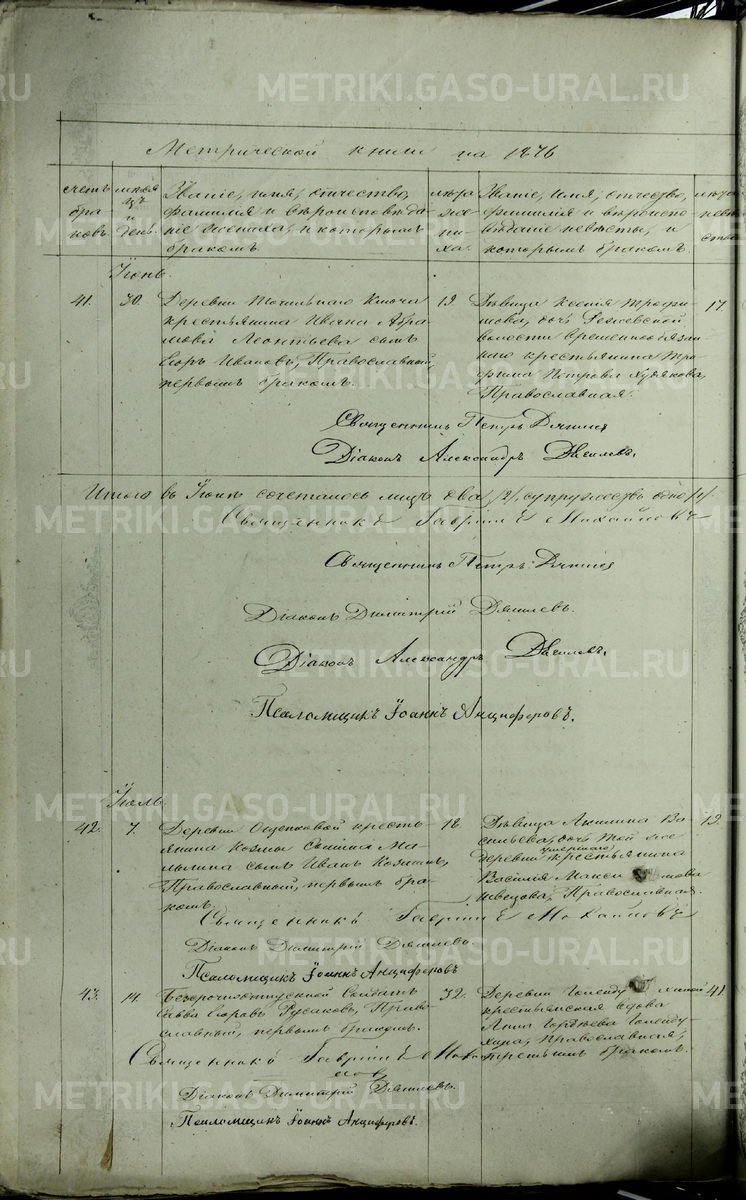 METRIKI.GASO-URAL.RU
Метрической книги на 1876
счетъ браковъ.
мѣсяцъ и день.
Званіе, имя, отчество,
фамилія и вѣроисповѣда-
ніе жениха, и которымъ
бракомъ.
лѣта же-
ни-
ха.
Званіе, имя, отчество,
фамилія и вѣроиспо-
вѣданіе невѣсты, и
которымъ бракомъ.
лѣта
невѣ-
сты
Іюнь.
41. 30. Деревни Точильнаго Ключа
крестьянина Ивана Абра-
мова Леонтьева сынъ
Егоръ Ивановъ, Православный,
первымъ бракомъ.
19.
Дѣвица Ксенія Трофи-
мова, дочь Режевской
волости временнообязан-
наго крестьянина Тро-
фима Петрова Худякова,
Православная.
17.
Священникъ Петръ
Діаконъ Александръ
Итого въ Іюнѣ сочеталось лицъ два /2/, супружество одно /1/
Священникъ Гавріилъ Михайловъ
Священникъ Петръ
Діаконъ Димитрій
Діаконъ Александръ
Псаломщикъ Іоаннъ Анциферовъ.
Іюль.
42. 7. Деревни Ощепковой кресть-
янина Козмы Саввина Ма-
мылина сынъ Иванъ Козминъ,
Православный, первымъ бра-
комъ.
18.
Дѣвица Акилина Ва-
сильева, дочь той же
деревни умершаго крестьянина
Василія
Швецова, Православная.
19.
Священникъ Гавріилъ Михайловъ
Діаконъ Димитрій
Псаломщикъ Іоаннъ Анциферовъ
43. 14. Безсрочноотпускной Солдатъ
Савва Русаковъ, Право-
славный, первымъ бракомъ.
32.
Деревни
крестьянская вдова
Анна Голенду-
хина, Православная,
третьимъ бракомъ.
41.
Священникъ Гавріилъ Михай-
ловъ
Діаконъ Димитрій
Псаломщикъ Іоаннъ Анциферовъ.